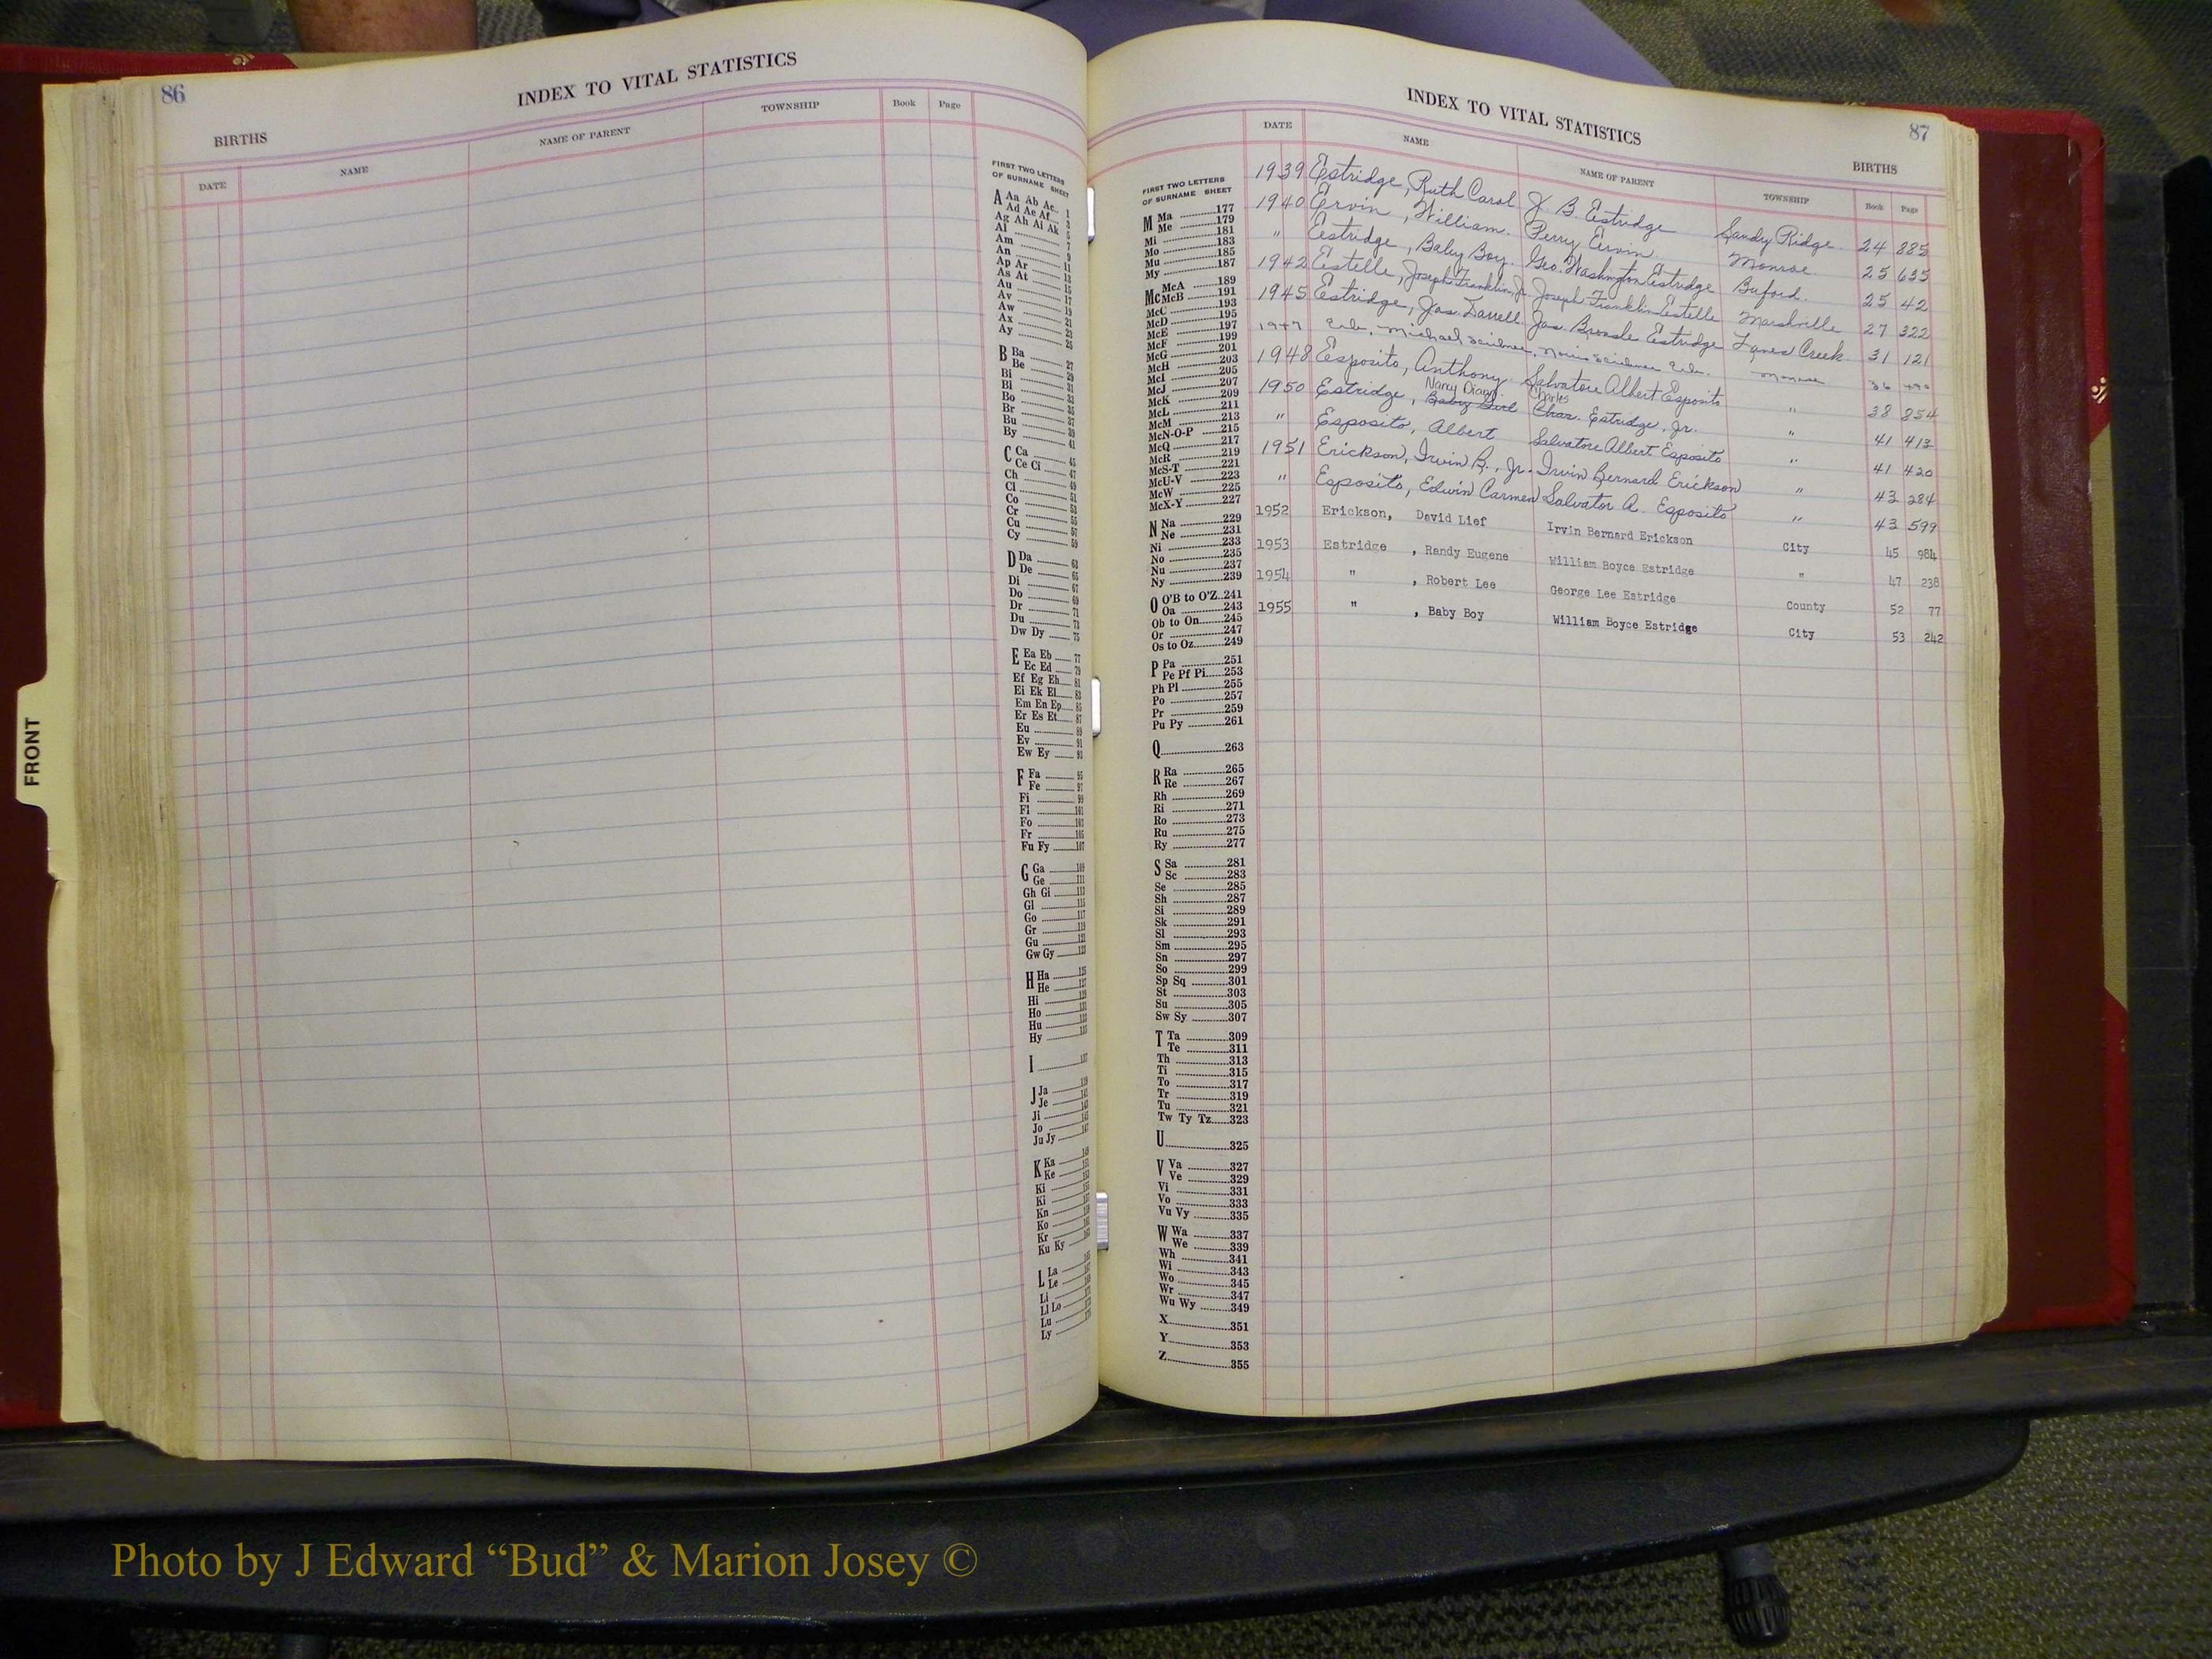 86
INDEX TO VITAL STATISTICS
BIRTHS
DATE NAME NAME OF PARENT TOWNSHIP Book Page
FIRST TWO LETTERS
OF SURNAME SHEET
A Aa Ab Ac 1
Ad Ae Af 3
Ag Ah Ai Ak 5
Al 7
Am 9
An 11
Ap Ar 13
As At 15
Au 17
Av 19
Aw 21
Ax 23
Ay 25
B Ba 27
Be 29
Bi 31
Bl 33
Bo 35
Br 37
Bu 39
By 41
C Ca 45
Ce Ci 47
Ch 49
Cl 51
Co 53
Cr 55
Cu 57
Cy 59
D Da 63
De 65
Di 67
Do 69
Dr 71
Du 73
Dw Dy 75
E Ea Eb 77
Ec Ed 79
Ef Eg Eh 81
Ei Ek El 83
Em En Ep 85
Er Es Et 87
Eu 89
Ev 91
Ew Ey 93
F Fa 95
Fe 97
Fi 99
Fl 101
Fo 103
Fr 105
Fu Fy 107
G Ga 109
Ge 111
Gh Gi 113
Gl 115
Go 117
Gr 119
Gu 121
Gw Gy 123
H Ha 125
He 127
Hi 129
Ho 131
Hu 133
Hy 135
I 137
J Ja
Je
Ji
Jo
Ju Jy
K Ka
Ke
Ki
Kl
Kn
Ko
Kr
Ku Ky
L La
Le
Li
Ll Lo
Lu
Ly
INDEX TO VITAL STATISTICS
87
BIRTHS
DATE NAME NAME OF PARENT TOWNSHIP Book Page
FIRST TWO LETTERS
OF SURNAME SHEET
M Ma 177
Me 179
Mi 181
Mo 183
Mu 185
My 187
Mc McA 189
McB 191
McC 193
McD 195
McE 197
McF 199
McG 201
McH 203
McI 205
McJ 207
McK 209
McL 211
McM 213
McN-O-P 215
McQ 217
McR 219
McS-T 221
McU-V 223
McW 225
McX-Y 227
N Na 229
Ne 231
Ni 233
No 235
Nu 237
Ny 239
O O'B to O'Z 241
Oa 243
Ob to On 245
Or 247
Os to Oz 249
P Pa 251
Pe Pf Pi 253
Ph Pl 255
Po 257
Pr 259
Pu Py 261
Q 263
R Ra 265
Re 267
Rh 269
Ri 271
Ro 273
Ru 275
Ry 277
S Sa 281
Sc 283
Se 285
Sh 287
Si 289
Sk 291
Sl 293
Sm 295
Sn 297
So 299
Sp Sq 301
St 303
Su 305
Sw Sy 307
T Ta 309
Te 311
Th 313
Ti 315
To 317
Tr 319
Tu 321
Tw Ty Tz 323
U 325
V Va 327
Ve 329
Vi 331
Vo 333
Vu Vy 335
W Wa 337
We 339
Wh 341
Wi 343
Wo 345
Wr 347
Wu Wy 349
X 351
Y 353
Z 355
1939 Estridge, Ruth Carol J. B. Estridge Sandy Ridge 24 885
1940 Ervin, William Perry Ervin Monroe 25 635
" Estridge, Baby Boy Geo. Washington Estridge Buford 25 42
1942 Estelle, Joseph Franklin, Jr. Joseph Franklin Estelle Marshville 27 322
1945 Estridge, Jas. Darrell Jas. Estridge Lanes Creek 31 121
1947 Michael Monroe 36
1948 Esposito, Anthony Salvatore Albert Esposito " 38 254
Nancy Diann Charles
1950 Estridge, Baby Girl Chas. Estridge, Jr. " 41 413
" Esposito, Albert Salvatore Albert Esposito " 41 420
1951 Erickson, Irvin B., Jr. Irvin Bernard Erickson " 43 284
" Esposito, Edwin Carmen Salvator A. Esposito " 43 599
1952 Erickson, David Lief Irvin Bernard Erickson City 45 984
1953 Estridge , Randy Eugene William Boyce Estridge " 47 238
1954 " , Robert Lee George Lee Estridge County 52 77
1955 " , Baby Boy William Boyce Estridge City 53 242
FRONT
Photo by J Edward “Bud” & Marion Josey ©